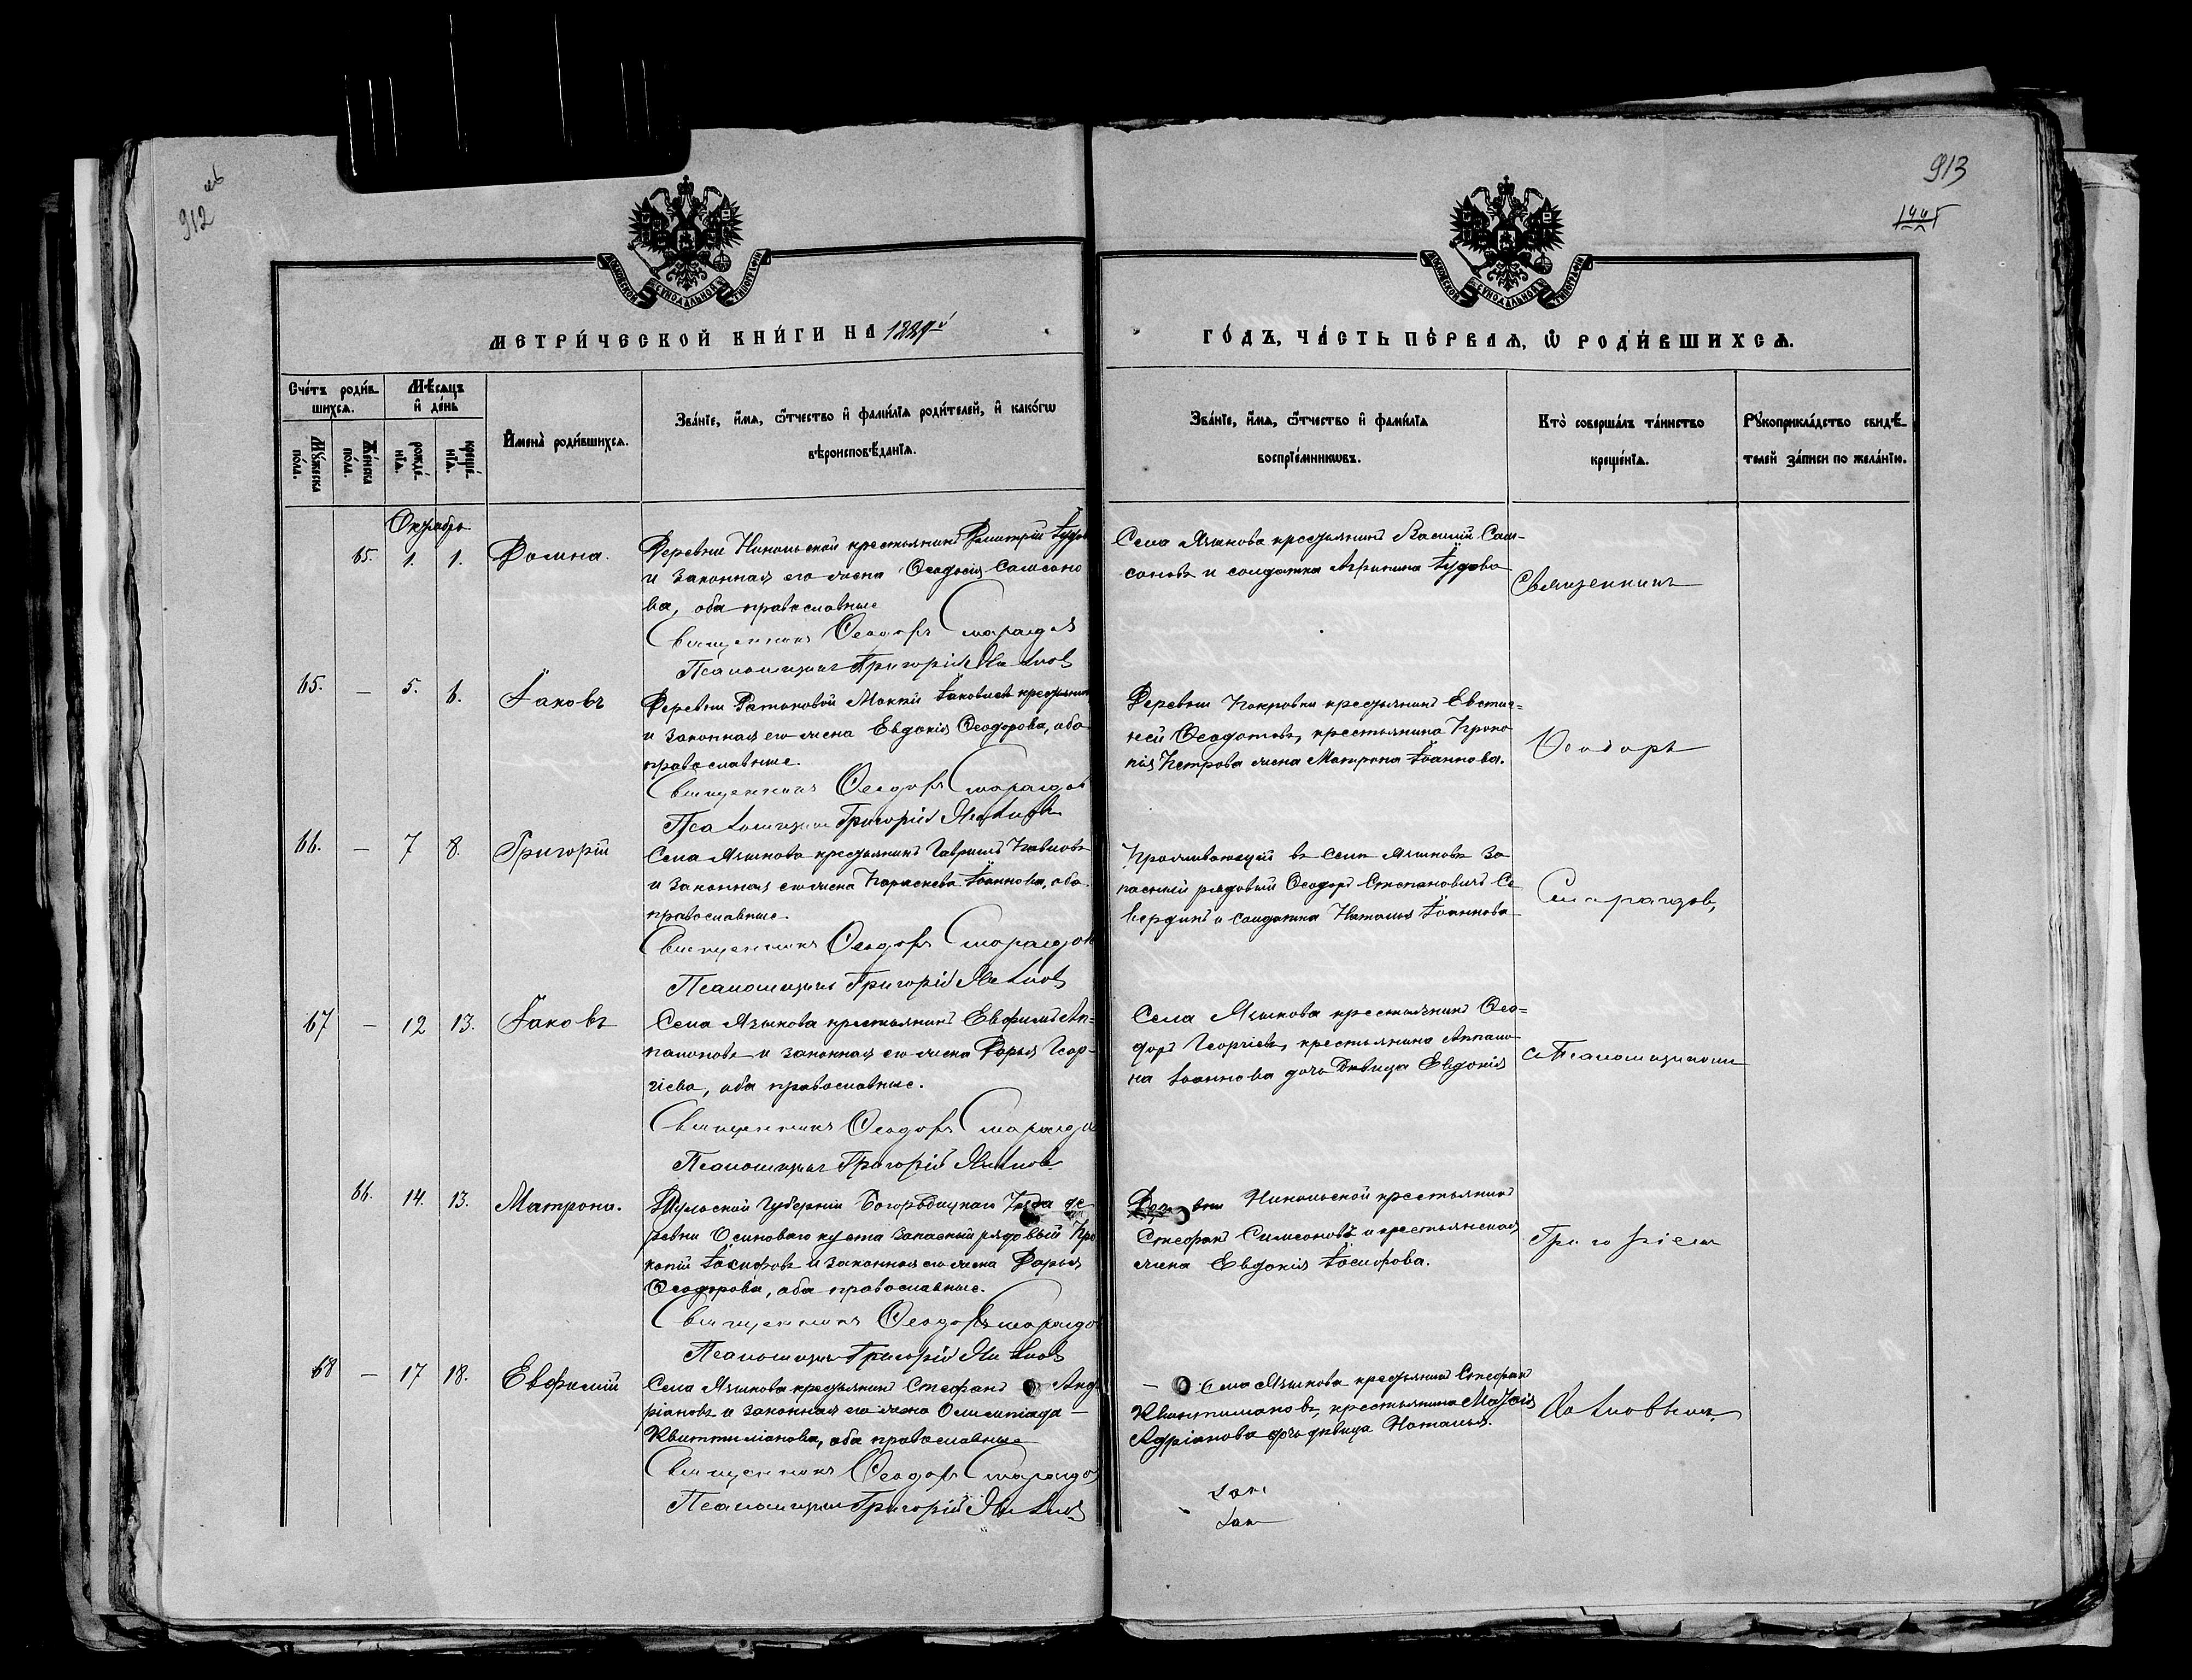 912
913
МОСКОВСКОЙ СУНОДАЛЬНОЙ ТИПОГРАФІИ
МОСКОВСКОЙ СУНОДАЛЬНОЙ ТИПОГРАФІИ
МЕТРИ́ЧЕСКОЙ КНИ́ГИ НА 1889й
ГО́ДЪ, ЧА́СТЬ ПЕ́РВАѦ, Ѡ РОДИ́ВШИХСѦ.
Сче́тъ роди́в-
шихсѧ.
Мѣ́сѧцъ
и҆ де́нь
Мꙋ́жеска по́ла.
Же́нска по́ла.
рожде́нїѧ.
креще́нїѧ.
И҆мена̀ роди́вшихсѧ.
Зва́нїе, и҆́мѧ, ѻ҆́тчество и҆ фами́лїѧ роди́телей, и҆ како́гѡ
вѣроисповѣ́данїѧ.
Зва́нїе, и҆́мѧ, ѻ҆́тчество и҆ фами́лїѧ
воспрїе́мникѡвъ.
Кто̀ соверша́лъ та́инство
креще́нїѧ.
Рꙋкоприкла́дство свидѣ́-
телей за́писи по жела́нїю.
Октябрь
65. 1. 1. Домна.
Деревни Никольской крестьянинъ Димитрій Іудовъ
и законная его жена Ѳеодосія Самсоно
ва, оба православные
Священникъ Ѳеодоръ Смарагдовъ
Псаломщикъ Григорій
Села Языкова крестьянинъ Василій Сам-
соновъ и солдатка Агрипина Іудова
Священникъ
65. – 5. 6. Іаковъ
Деревни Мокій Іаковлевъ крестьянинъ
и законная его жена Евдокія Ѳеодорова, оба
православные.
Священникъ Ѳеодоръ Смарагдов
Псаломщикъ Григорій
Деревни Покровки крестьянинъ Евстиг-
ней Ѳеодотовъ, крестьянина Проко
пія Петрова жена Матрона Іоаннова.
Ѳеодоръ
66. – 7 8. Григорій
Села Языкова крестьянинъ Гавріилъ Павловъ
и законная его жена Параскева Іоаннова, оба
православные.
Священникъ Ѳеодоръ Смарагдов
Псаломщикъ Григорій
Проживающій въ селѣ Языковѣ за
пасный рядовый Ѳеодоръ Степановичъ Се
вердинъ и солдатка Наталья Іоаннова
Смарагдов,
67 – 12 13. Іаковъ
Села Языкова крестьянинъ Евфимъ Ап-
палоновъ и законная его жена Дарья Геор-
гіева, оба православные.
Священникъ Ѳеодоръ Смарагдо
Псаломщикъ Григорій
Села Языкова крестьянинъ Ѳео-
доръ Георгіевъ, крестьянина Аппало-
на Іоаннова дочь дѣвица Евдокія
съ Псаломщикомъ
66. 14. 13. Матрона.
Тульской Губерніи Богородицкаго Уѣзда де
ревни Осиноваго куста запасный рядовый Про
копій Іосифовъ и законная его жена Дарья
Ѳеодорова, оба православные.
Священникъ Ѳеодоръ Смарагдо
Псаломщикъ Григорій
вни Никольской крестьянинъ
Стефанъ Симеоновъ и крестьянская
жена Евдокія Іосифова.
Григоріем
68 – 17 18. Евфимій
Села Языкова крестьянинъ Стефанъ Анд
ріановъ и законная его жена Олимпіада –
Квинтиліанова, оба православные
Священникъ Ѳеодоръ Смарагдо
Псаломщикъ Григорій
– Села Языкова крестьянинъ Стефанъ
Квинтиліановъ, крестьянина Моѵсія
Адріанова дочь дѣвица Наталья.